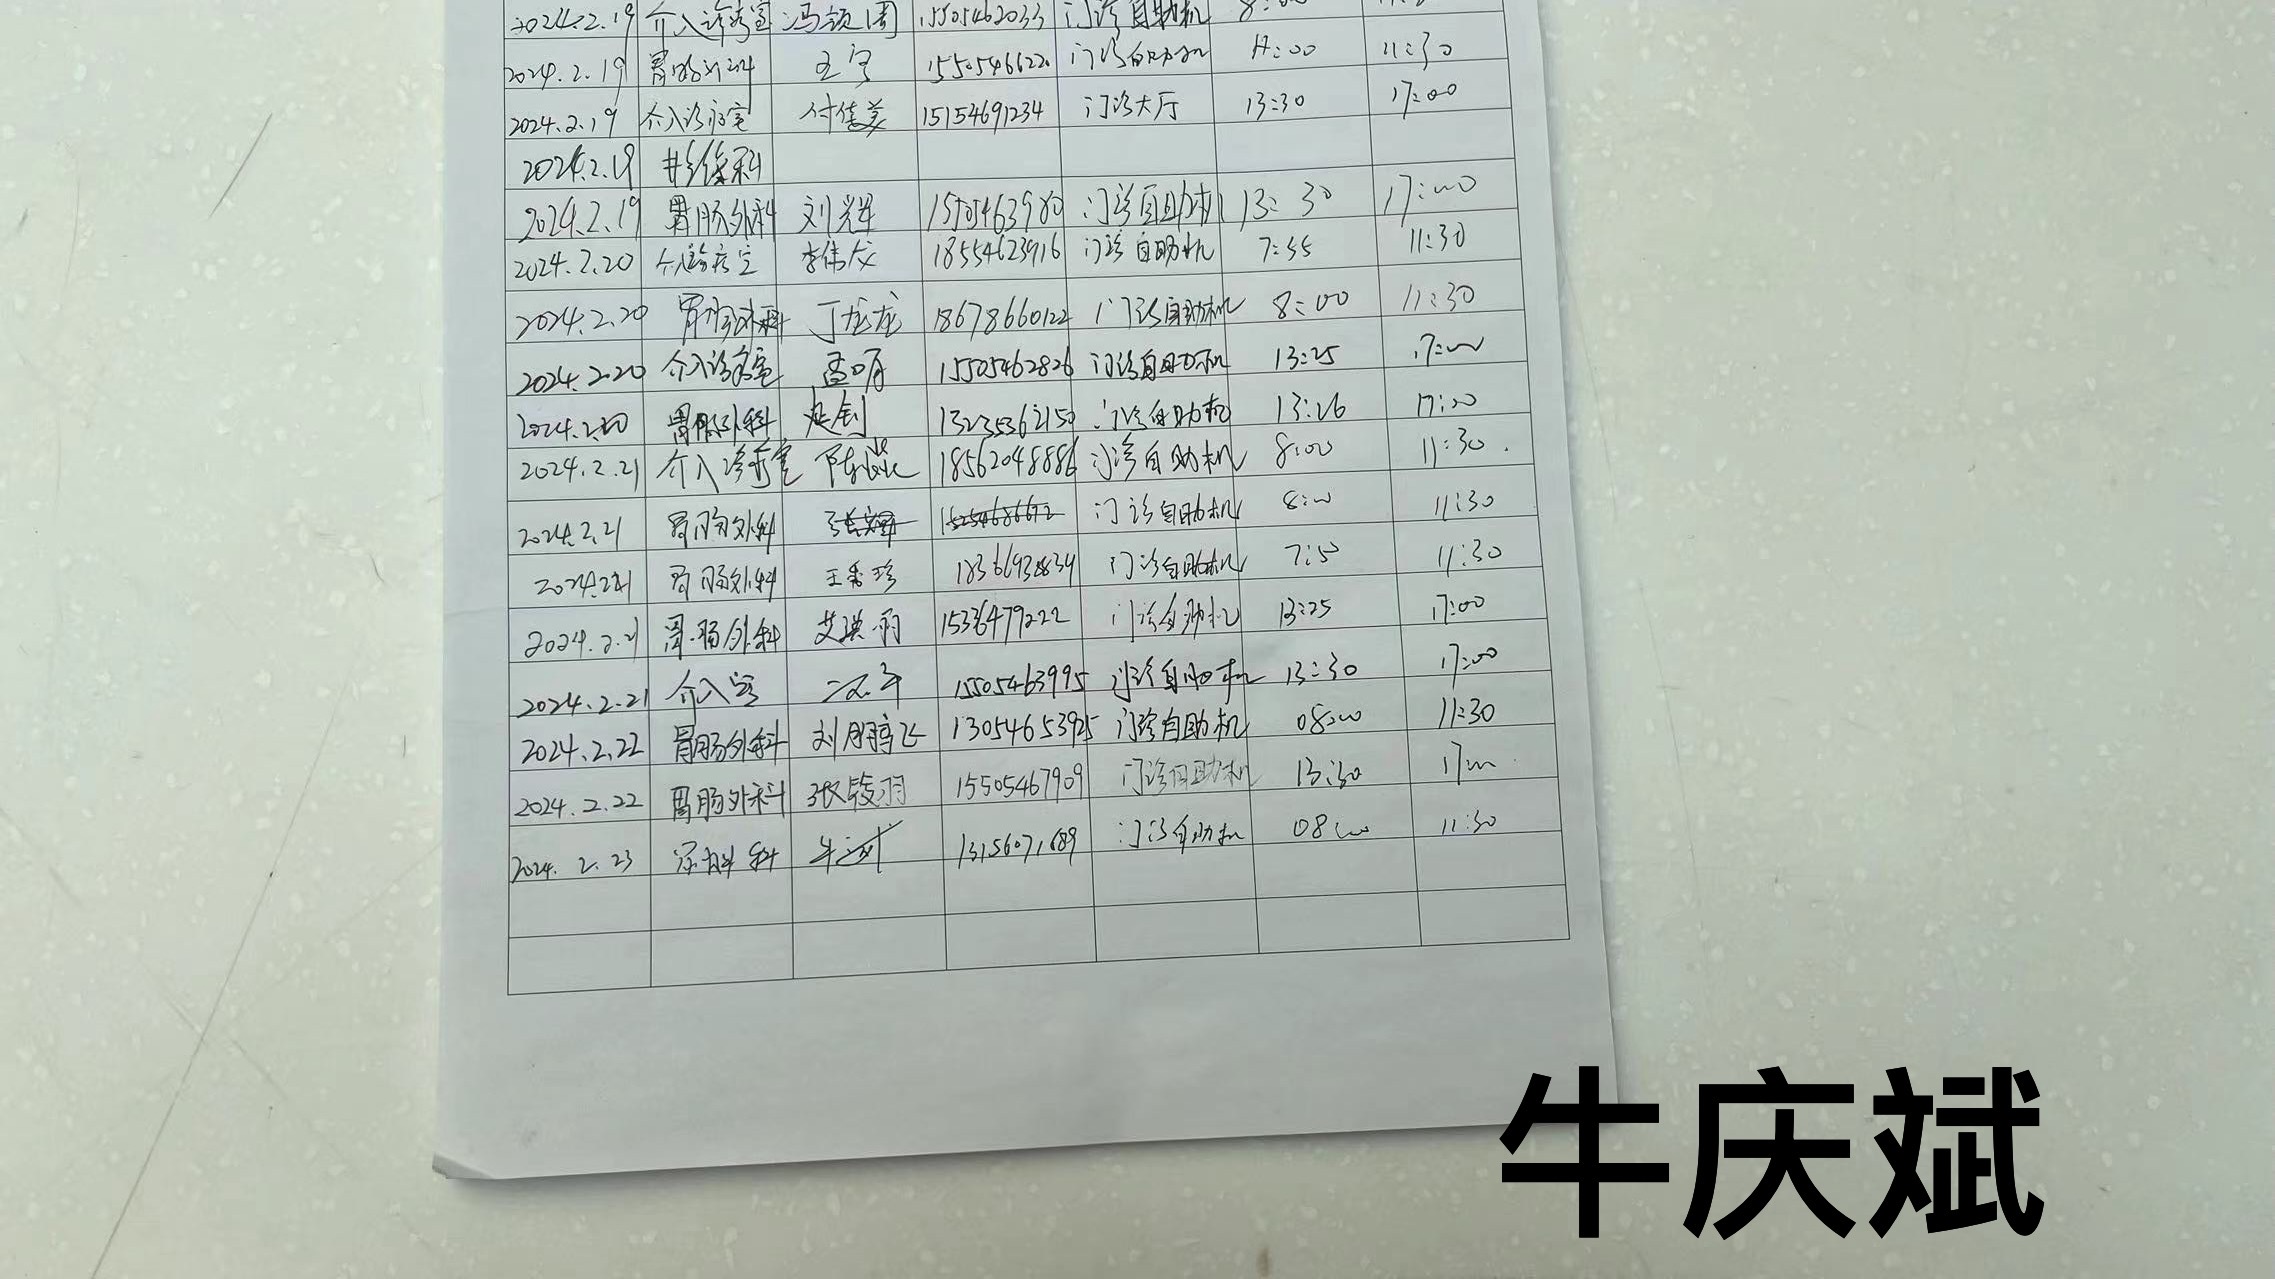 2024.2.19 介入诊疗室 冯领周 15505462033 门诊自助机
2024.2.19 胃肠外科 王宁 15505466220 门诊自助机 11:30
2024.2.19 介入诊疗室 付佳美 15154691234 门诊大厅 13:30 17:00
2024.2.19 影像科
2024.2.19 胃肠外科 刘辉 15505463980 门诊自助机 13:30 17:00
2024.2.20 介入诊疗室 李伟成 18554623916 门诊自助机 7:55 11:30
2024.2.20 胃肠外科 丁龙龙 18678660122 门诊自助机 8:00 11:30
2024.2.20 介入诊疗室 孟明 15505462826 门诊自助机 13:25 17:00
2024.2.20 胃肠外科 13235362150 门诊自助机 13:26 17:00
2024.2.21 介入诊疗室 18562048886 门诊自助机 8:00 11:30
2024.2.21 胃肠外科 门诊自助机 8:00 11:30
2024.2.21 胃肠外科 王秀珍 门诊自助机 7:50 11:30
2024.2.21 胃肠外科 15336479222 门诊自助机 13:25 17:00
2024.2.21 介入室 15505463995 门诊自助机 13:30 17:00
2024.2.22 胃肠外科 刘鹏飞 13054653925 门诊自助机 08:00 11:30
2024.2.22 胃肠外科 15505467909 门诊自助机 13:30 17:00
2024.2.23 13156071689 门诊自助机 08:00 11:30
牛庆斌